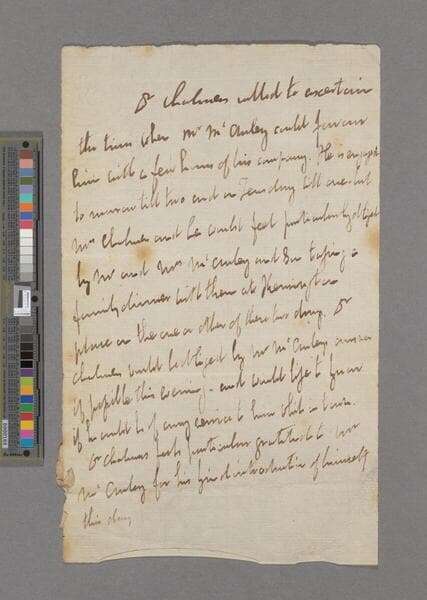 Dr Chalmers called to ascertain
the time when Mr McAuley could favour
him with a few hours of his company. He is engaged
to morrow till two and on Tuesday till one but
Mrs Chalmers and he would feel particularly obliged
by Mr and Mrs McAuley and taking a
family dinner with them at Kensington
place on the one or other of these two days. Dr
Chalmers would be obliged by Mr McAuleys answer
if possible this evening - and would like to know
if he could be of any service to him while in town.
Dr Chalmers feels particular gratitude to Mr
McAuley for his kind introduction of himself
this day